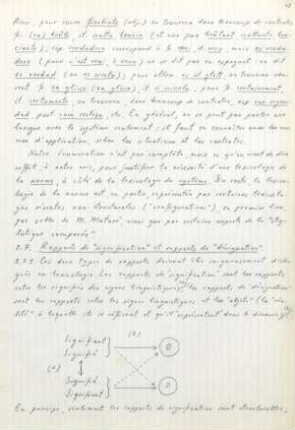 Ainsi, pour
(adj.) on trouvera dans beaucoup de contextes
fr. (en) boîte, it. notte bianca (et non pas
); esp. verdadero correspond à fr. vrai, it. vero, mais es verdadero
(pour « est vrai, è vero ») ne se dit pas en espagnol: on dit
es verdad (ou es cierto); pour allem. es ist glatt, on trouvera souvent
fr. ça glisse (on glisse), it. si scivola; pour fr. certainement,
it. certamente, on trouvera, dans beaucoup de contextes, esp. con seguridad
, port. com certeza, etc. En général, on ne peut pas parler une
langue avec le système seulement; il faut en connaître aussi les normes
d'application, selon les situations et les contextes.
Notre énumération n'est pas complète, mais ce qu'on vient de dire
suffit, à notre avis, pour justifier la nécessité d'une lexicologie de
la norme, à côté de la lexicologie du système. Du reste, la lexicologie
de la norme est en partie représentée par certaines lexicologies
récentes, non structurales ("configuratives"), en premier lieu,
par celle de M. Matoré, ainsi que par certains aspects de la "stylistique
comparée".
2.7. Rapports de "signification" et rapports de "désignation".
2.7.1. Les deux types de rapports doivent être soigneusement distingués
en lexicologie. Les rapports de "signification" sont les rapports
entre les signifiés des signes linguistiques; les rapports de "désignation"
sont les rapports entre les signes linguistiques et les "objets" (la "réalité"
) à laquelle ils se réfèrent et qu'ils représentent dans le discours
(b)
Signifiant
Signifié
O
(a)
Signifié
Signifiant
O
En principe, seulement les rapports de signification sont structurables,